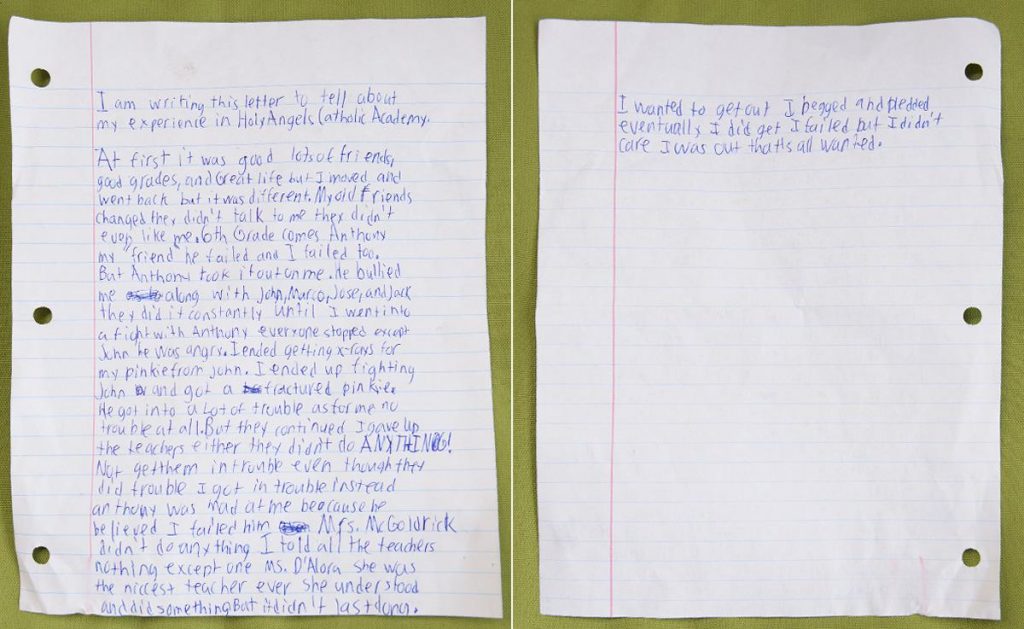 I am writing this letter to tell about
my experience in Holy Angels Catholic Academy.
At first it was good lots of friends,
good grades, and Great life but I moved and
went back but it was different. My old friends
changed they didn't talk to me they didn't
even like me. 6th Grade comes Anthony
my "friend" he failed and I failed too.
But Anthony took it out on me. He bullied
me along with John, Marco, Jose, and Jack
they did it constantly until I went into
a fight with Anthony everyone stopped except
John he was angry. I ended getting x-rays for
my pinkie from John. I ended up fighting
John and got a fractured pinkie.
He got into a lot of trouble as for me no
trouble at all. But they continued I gave up
the teachers either they didn't do ANYTHING!
Not get them in trouble even though they
did trouble I got in trouble instead
anthony was mad at me beocause he
believed I failed him Mrs. McGoldrick
didn't do anything I told all the teachers
nothing except one Ms. D'Alora she was
the niccest teacher ever she understood
and did something But it didn't last long.
I wanted to get out I begged and pledded
eventually I did get I failed but I didn't
care I was out that's all wanted.